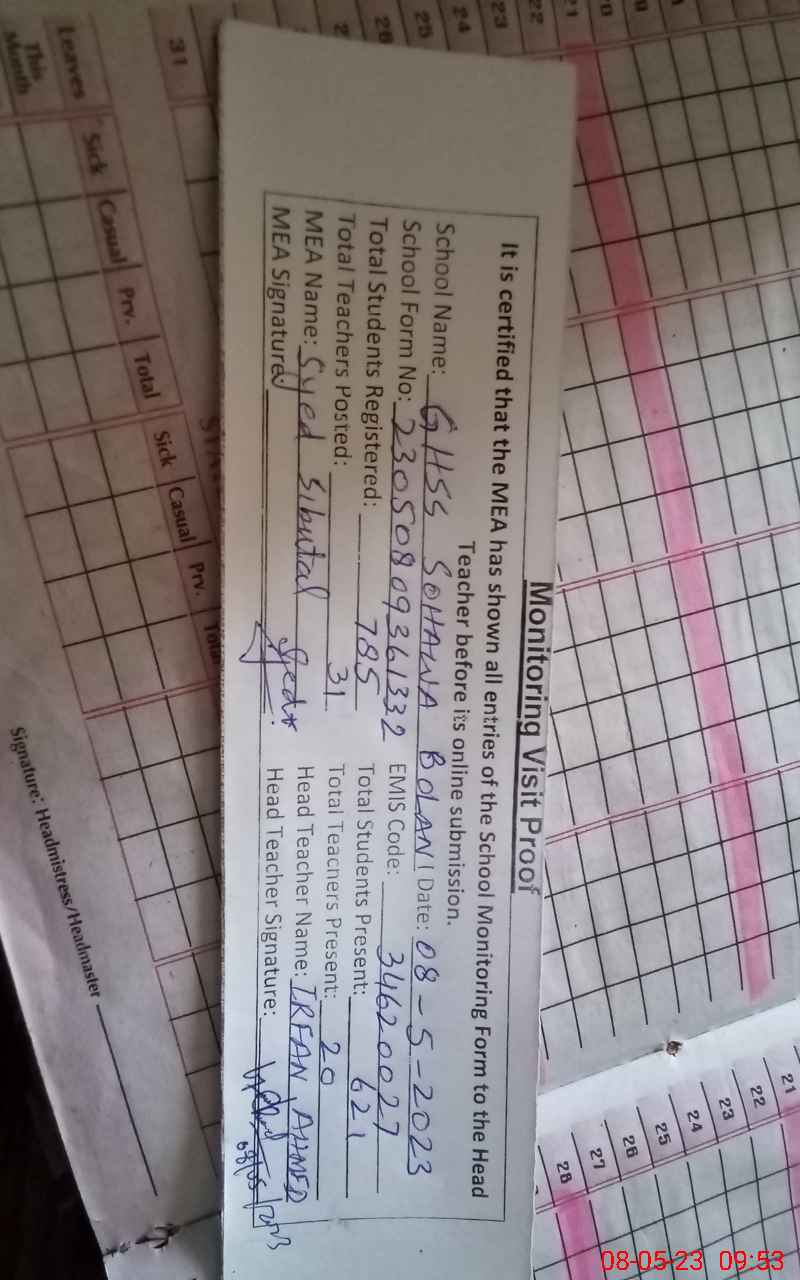 Monitoring Visit Proof
It is certified that the MEA has shown all entries of the School Monitoring Form to the Head
Teacher before its online submission.
School Name: GHSS SOHAWA BOLANI Date: 08-5-2023
School Form No: 23050809361332 EMIS Code: 34620027
Total Students Registered: 785 Total Students Present: 621
Total Teachers Posted: 31 Total Teachers Present: 20
MEA Name: Syed Sibutal Head Teacher Name: IRFAN AHMED
MEA Signature: Head Teacher Signature: 08/05/2023
20
21
22
23
24
25
26
31
Leaves
This
Month
Sick Casual Prv. Total
Sick Casual Prv. Total
Signature: Headmistress/Headmaster
21
22
23
24
25
26
27
28
08-05-23 09:53